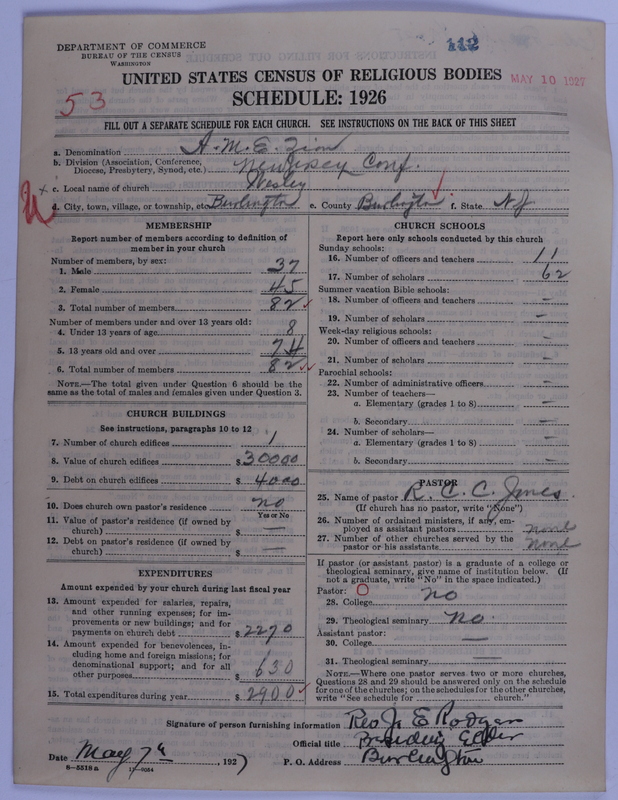 112
DEPARTMENT OF COMMERCE
BUREAU OF THE CENSUS
WASHINGTON
UNITED STATES CENSUS OF RELIGIOUS BODIES
MAY 10 1927
53
SCHEDULE: 1926
FILL OUT A SEPARATE SCHEDULE FOR EACH CHURCH. SEE INSTRUCTIONS ON THE BACK OF THIS SHEET
a. Denomination A. M. E. Zion
b. Division (Association, Conference, Diocese, Presbytery, Synod, etc.) New Jersey Conf.
c. Local name of church Wesley
d. City, town, village, or township, etc. Burlington e. County Burlington f. State N J
MEMBERSHIP
Report number of members according to definition of member in your church
Number of members, by sex:
1. Male 37
2. Female 45
3. Total number of members 82
Number of members under and over 13 years old:
4. Under 13 years of age 8
5. 13 years old and over 74
6. Total number of members 82
NOTE.—The total given under Question 6 should be the same as the total of males and females given under Question 3.
CHURCH BUILDINGS
See instructions, paragraphs 10 to 12
7. Number of church edifices 1
8. Value of church edifices $ 30000
9. Debt on church edifices $ 4000
10. Does church own pastor's residence no
Yes or No
11. Value of pastor's residence (if owned by church) $ —
12. Debt on pastor's residence (if owned by church) $ —
EXPENDITURES
Amount expended by your church during last fiscal year
13. Amount expended for salaries, repairs, and other running expenses; for improvements or new buildings; and for payments on church debt $ 2270
14. Amount expended for benevolences, including home and foreign missions; for denominational support; and for all other purposes $ 630
15. Total expenditures during year $ 2900
CHURCH SCHOOLS
Report here only schools conducted by this church
Sunday schools:
16. Number of officers and teachers 11
17. Number of scholars 62
Summer vacation Bible schools:
18. Number of officers and teachers —
19. Number of scholars —
Week-day religious schools:
20. Number of officers and teachers —
21. Number of scholars —
Parochial schools:
22. Number of administrative officers —
23. Number of teachers—
a. Elementary (grades 1 to 8) —
b. Secondary —
24. Number of scholars—
a. Elementary (grades 1 to 8) —
b. Secondary —
PASTOR
25. Name of pastor R. C. C. Jones
(If church has no pastor, write "None")
26. Number of ordained ministers, if any, employed as assistant pastors none
27. Number of other churches served by the pastor or his assistants none
If pastor (or assistant pastor) is a graduate of a college or theological seminary, give name of institution below. (If not a graduate, write "No" in the space indicated.)
Pastor: O
28. College no
29. Theological seminary no.
Assistant pastor:
30. College —
31. Theological seminary —
NOTE.—Where one pastor serves two or more churches, Questions 28 and 29 should be answered only on the schedule for one of the churches; on the schedules for the other churches, write "See schedule for church."
Signature of person furnishing information Rev J. E Rodgers
Official title Presiding Elder
Date May 7th, 1927 P. O. Address Burlington
8—5518a